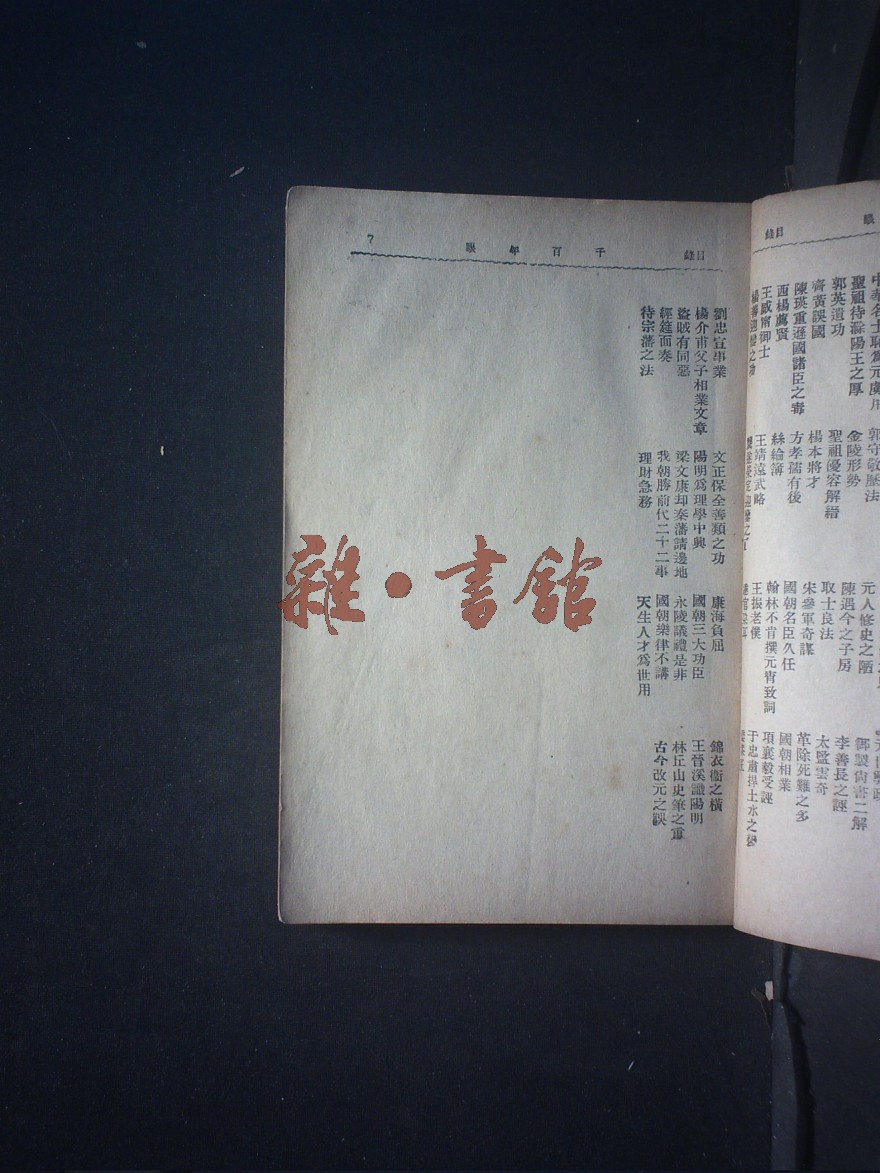 眼
目錄
中華名士恥爲元虜用
郭守敬
元人修史之陋
聖祖待滁陽王之厚
金陵形勢
陳遇今之子房
御製尙書二解
郭英遺功
聖祖優容解縉
取士良法
李善長之誣
齊黃誤國
楊本將才
宋參軍奇謀
太監雲奇
陳瑛重遜國諸臣之毒
方孝孺有後
國朝名臣久任
革除死難之多
西楊薦賢
絲綸簿
翰林不肯撰元宵致詞
國朝相業
王威甯御士
王靖遠武略
王振老僕
項襄毅受誣
于忠肅捍土水之
目錄
千百年眼
7
劉忠宣事業
文正保全善類之功
康海負屈
錦衣衞之橫
楊介甫父子相業文章
陽明爲理學中興
國朝三大功臣
王晉溪識陽明
盜賊有同惡
梁文康却秦藩請邊地
永陵議禮是非
林丘山史筆之重
經筵面奏
我朝勝前代二十二事
國朝樂律不講
古今改元之誤
待宗藩之法
理財急務
天生人才爲世用
雜·書館